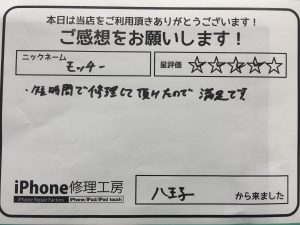 本日は当店をご利用頂きありがとうございます！
ご感想をお願いします！
ニックネーム
モッチー
星評価 ☆☆☆☆☆
・短時間で修理して頂けたので 満足です
iPhone修理工房
iPhone Repair Factory iPhone/iPad/iPod touch
八王子 から来ました